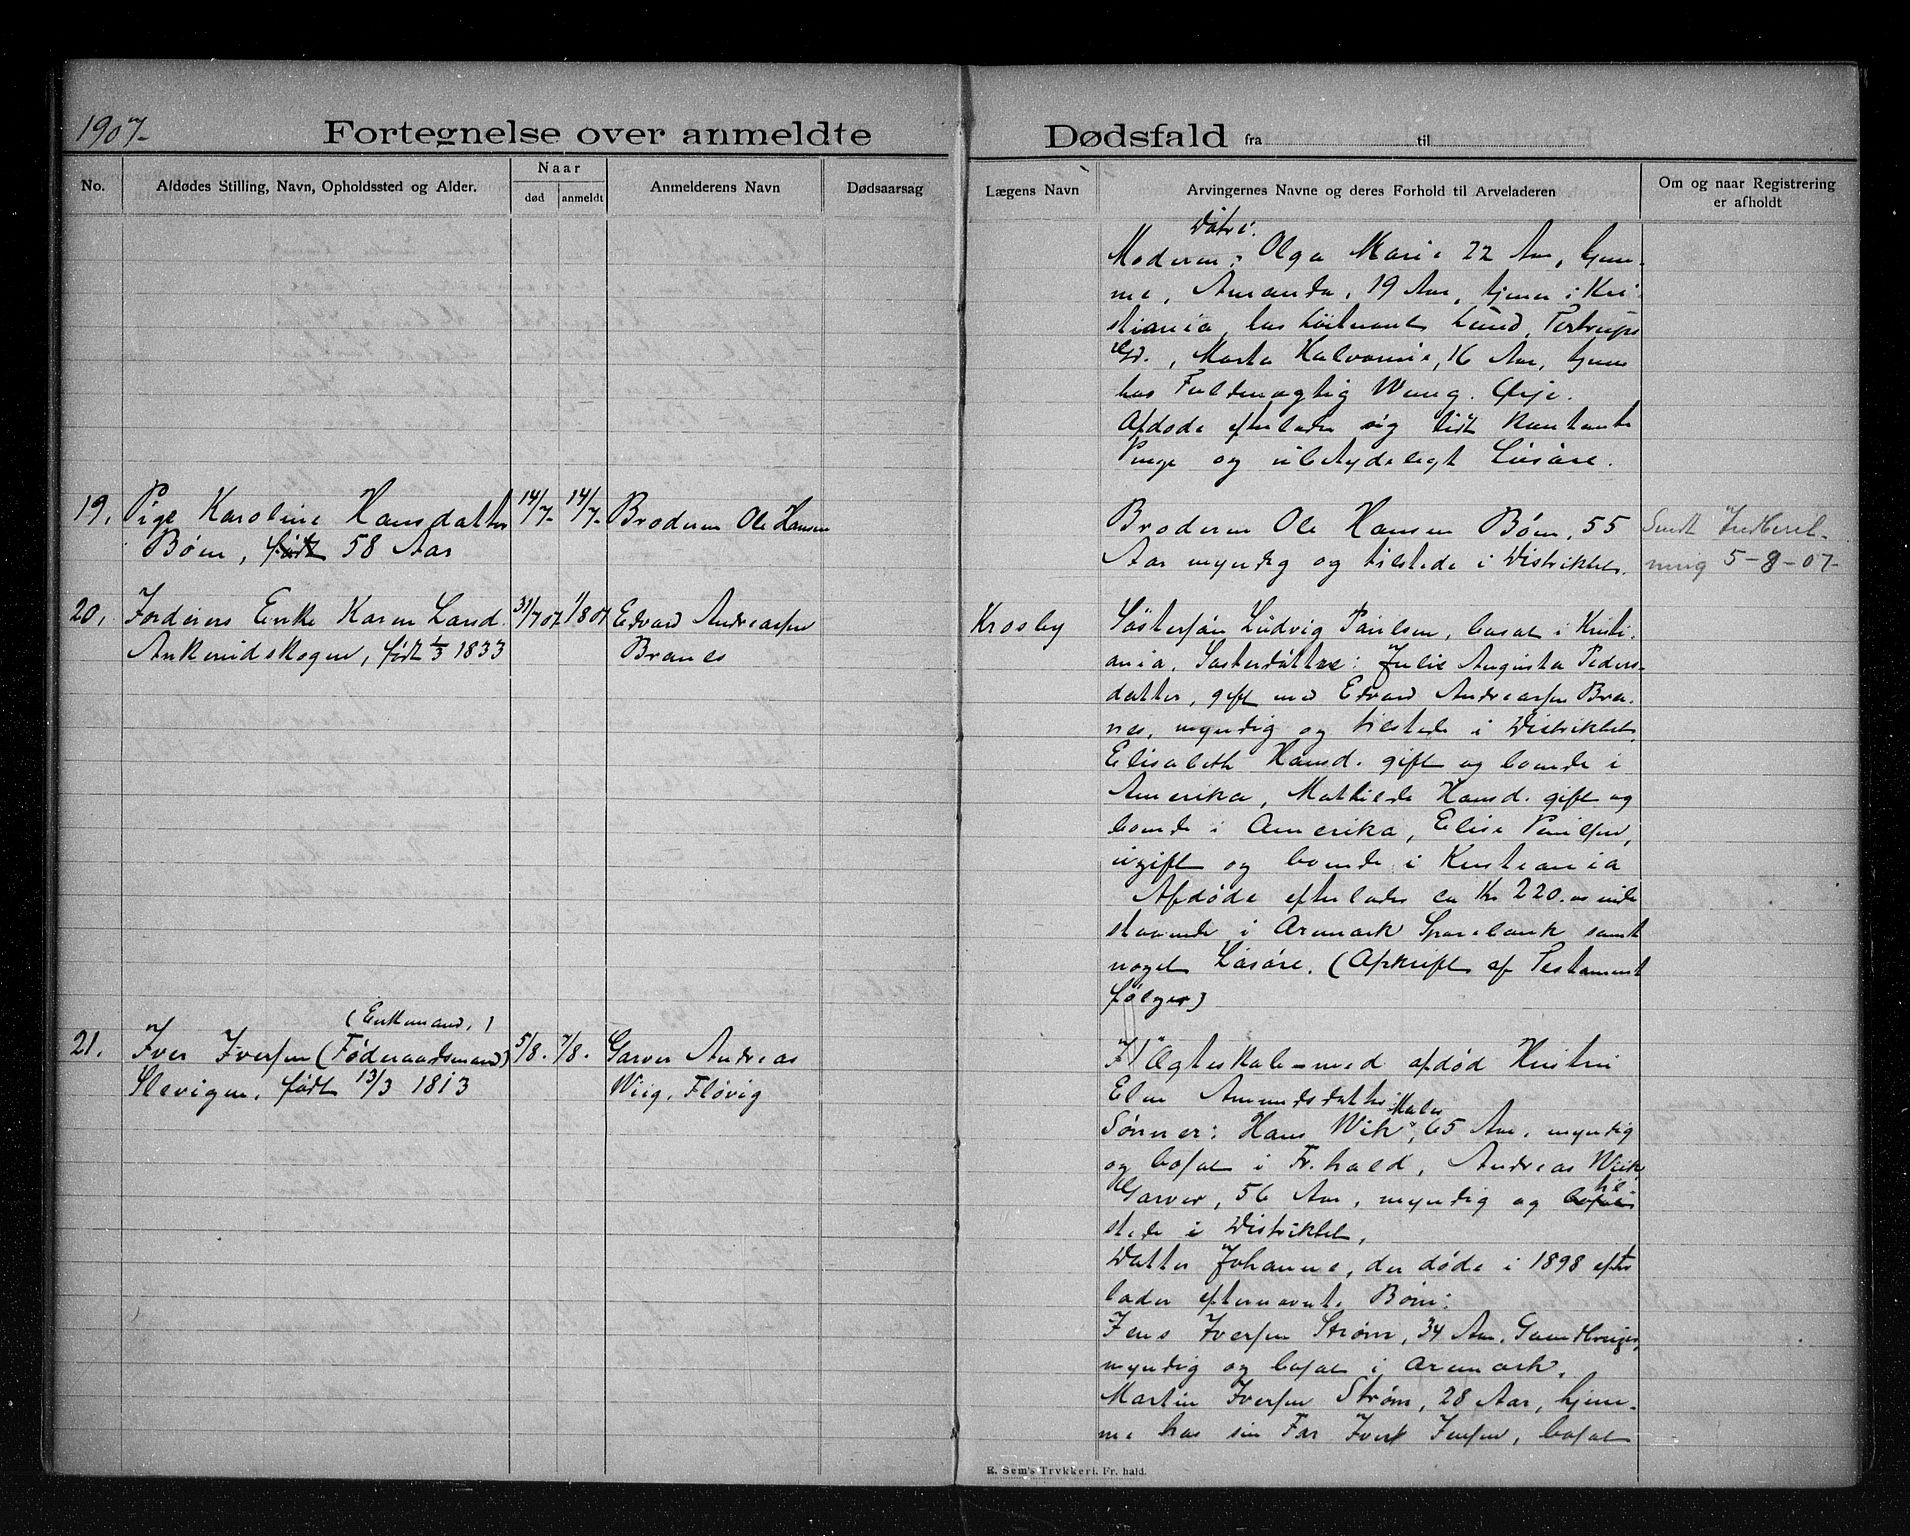 1907-
Fortegnelse over anmeldte Dødsfald fra til
No.
Afdødes Stilling, Navn, Opholdssted og Alder.
Naar
død
anmeldt
Anmelderens Navn
Dødsaarsag
Lægens Navn
Arvingernes Navne og deres Forhold til Arveladeren
Om og naar Registrering
er afholdt
Døtre:
Moderen; Olga Marie 22 Aar, hjem-
me, Amanda, 19 Aar, tjener i Kri-
stiania, hos Løitnant Lund,
Gd., Marta 16 Aar, tjener
hos Fuldmægtig Wang. Ørje.
Afdøde efterlader sig lidt kontante
Penge og ubetydeligt Løsøre.
19. Pige Karoline Hansdatter
Bøen, født 58 Aar
14/7- 14/7-
Broderen Ole Hansen
Broderen Ole Hansen Bøen, 55
Aar myndig og tilstede i Distriktet.
Sendt Indberet-
ning 5-8-07-
20. Forderers Enke Karen Larsd.
Ankeridskogen, født 1/3 1833
31/7 07 1/8 07
Edvard Andreassen
Branes
Krosby
Søstersøn Ludvig Paulsen, bosat i Kristi-
ania, Søsterdøttre: Julie Augusta Peders-
datter, gift med Edvard Andreassen Bra-
nes, myndig og tilstede i Distriktet,
Elisabeth Hansd. gift og boende i
Amerika, Mathilde Hansd. gift og
boende i Amerika, Elise Paulsen,
ugift og boende i Kristiania
Afdøde efterlader ca Kr 220.00 inde
staaende i Aremark Sparebank samt
noget Løsøre. (Afskrift af Testament
følger)
(Enkemand,)
21. Iver Iversen (Føderaadsmand)
Slevigen, født 13/3 1813
5/8- 7/8-
Garver Andreas
Wiig, Fløvig
I Ægteskab med afdød Hustru
Elen Amundsdatter
Maler
Sønner: Hans Wik, 65 Aar, myndig
og bosat i Fr.hald, Andreas Wiik
Garver, 56 Aar, myndig og bosat til
stede i Distriktet,
Datter Johanne, der døde i 1898 efter
lader efternævnte Børn:
Jens Iversen Strøm, 34 Aar, Gaardbruger,
myndig og bosat i Aremark,
Martin Iversen Strøm, 28 Aar, hjem-
me hos sin Far Iver Jensen, bosat
E. Sem's Trykkeri. Fr. hald.